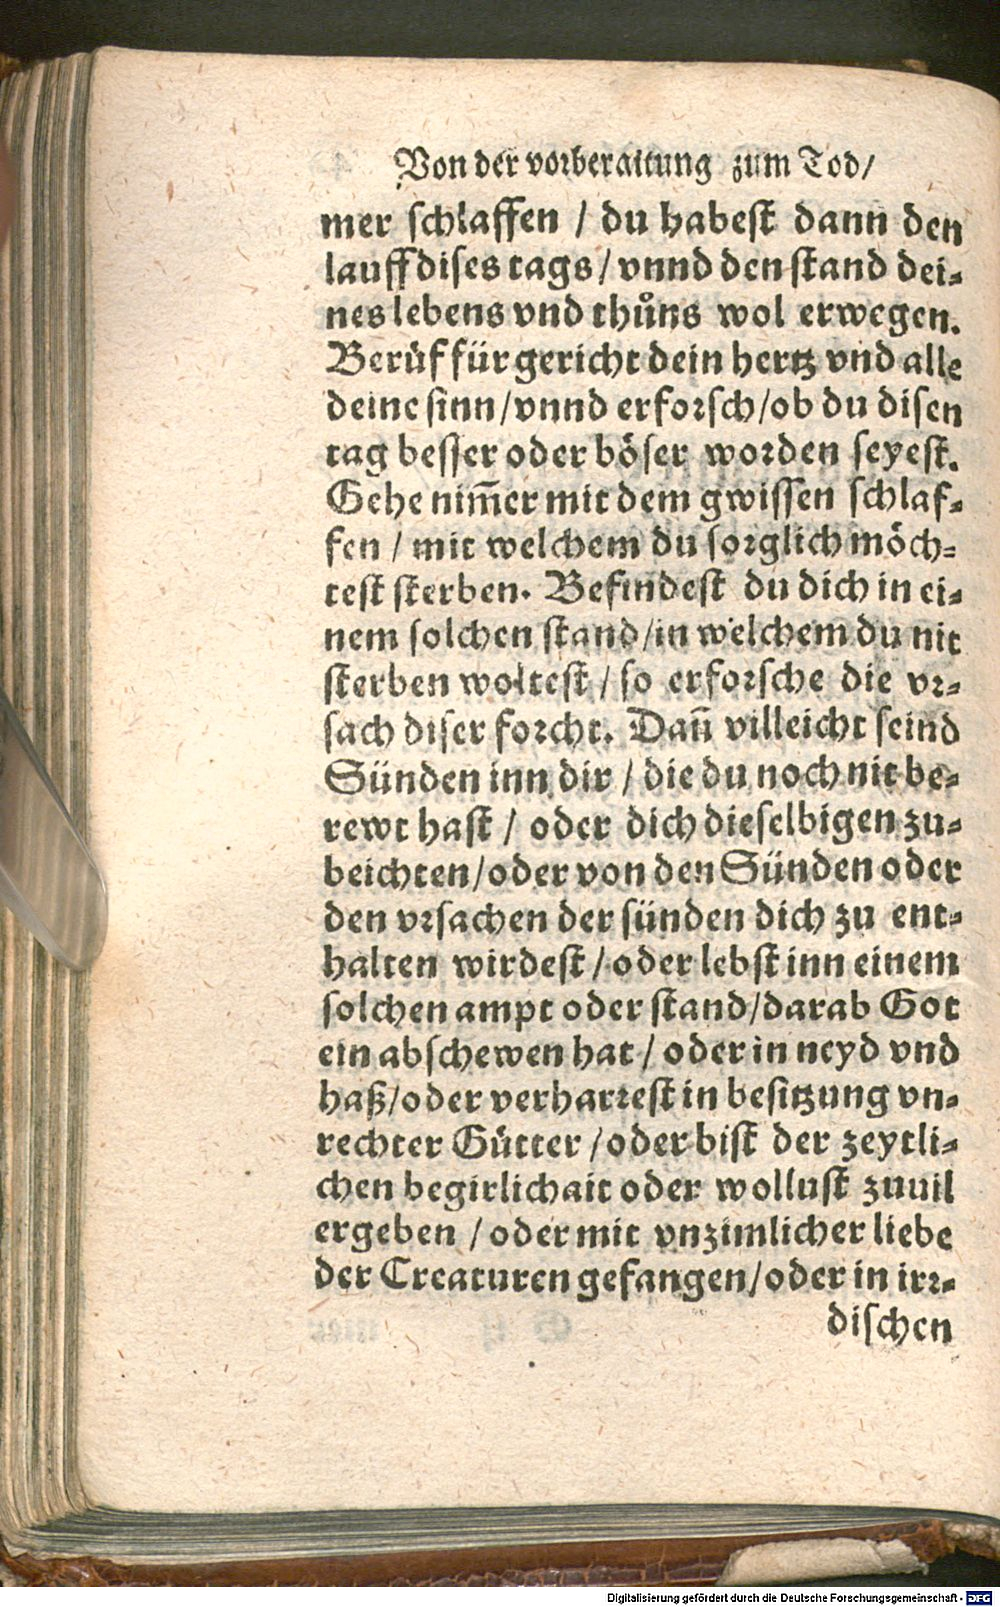 Von der vorberaitung zum Tod/
mer schlaffen / du habest dann den
lauff dises tags / vnnd den stand dei-
nes lebens vnd thůns wol erwegen.
Berüf für gericht dein hertz vnd alle
deine sinn/vnnd erforsch/ob du disen
tag besser oder böser worden seyest.
Gehe nim̅er mit dem gwissen schlaf-
fen / mit welchem du sorglich möch-
test sterben. Befindest du dich in ei-
nem solchen stand/in welchem du nit
sterben woltest / so erforsche die vr-
sach diser forcht. Dan̅ villeicht seind
Sünden inn dir / die du noch nit be-
rewt hast / oder dich dieselbigen zu-
beichten/oder von den Sünden oder
den vrsachen der sünden dich zu ent-
halten wirdest / oder lebst inn einem
solchen ampt oder stand/darab Got
ein abschewen hat / oder in neyd vnd
haß/oder verharrest in besitzung vn-
rechter Gütter / oder bist der zeytli-
chen begirlichait oder wollust zuuil
ergeben / oder mit vnzimlicher liebe
der Creaturen gefangen/oder in irr-
dischen
Digitalisierung gefördert durch die Deutsche Forschungsgemeinschaft - DFG